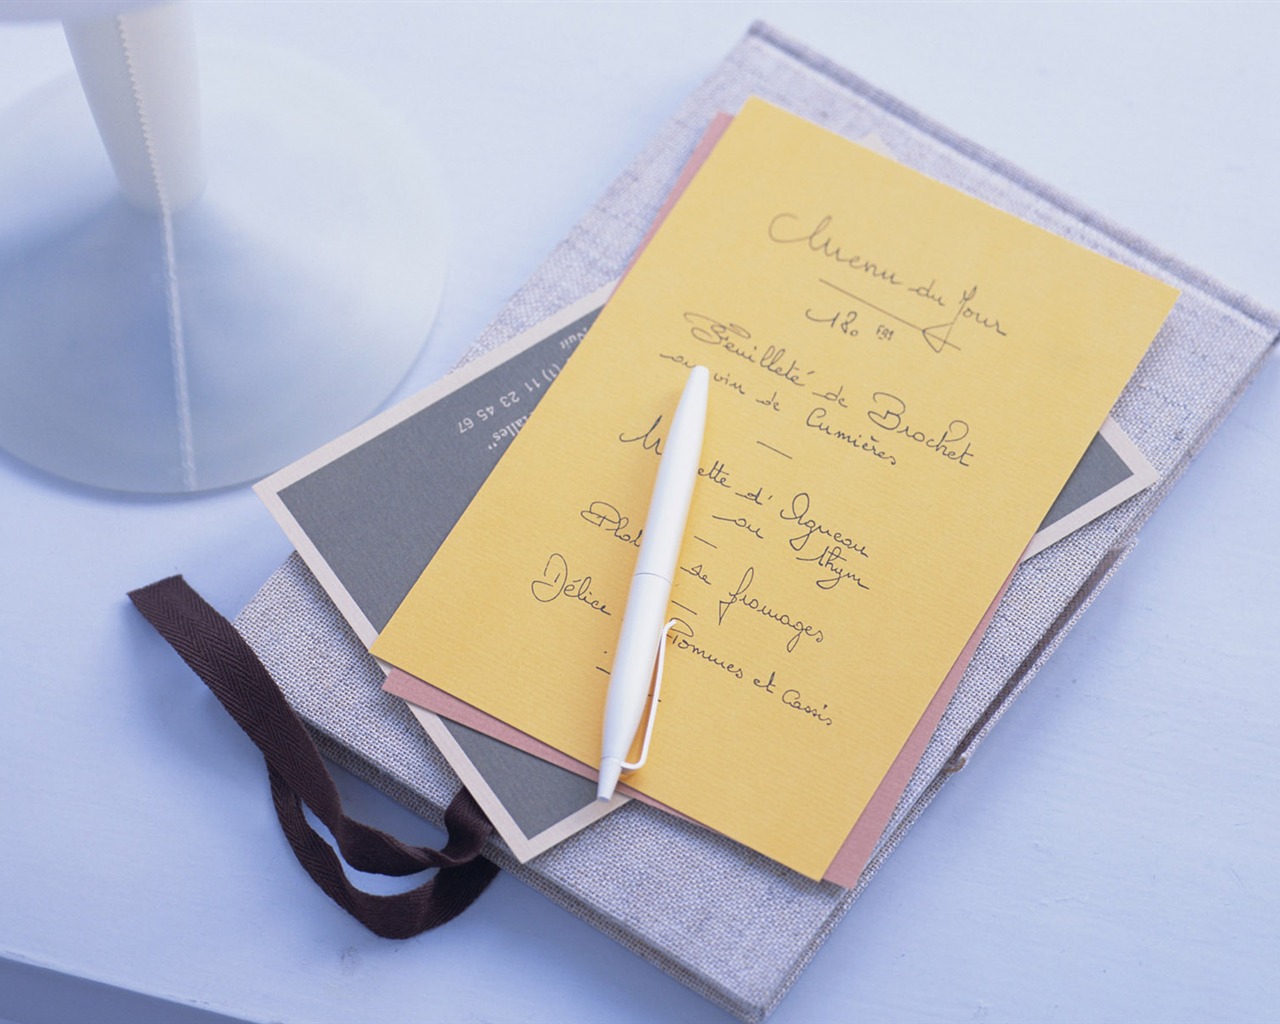 Menu du Jour
180 FRS
Feuilleté de Brochet
au vin de Cumières
ette d'Agneau
au thym
de fromages
Délice Pommes et Cassis
(1) 11 23 45 67